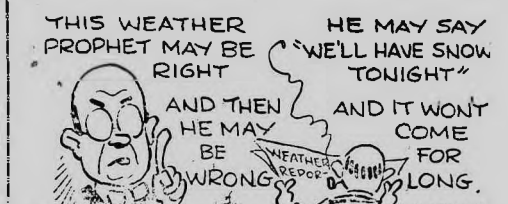 THIS WEATHER
PROPHET MAY BE
RIGHT
AND THEN
HE MAY
BE
WRONG
HE MAY SAY
"WE'LL HAVE SNOW
TONIGHT"
AND IT WON'T
COME
FOR
LONG.
WEATHER
REPOR-